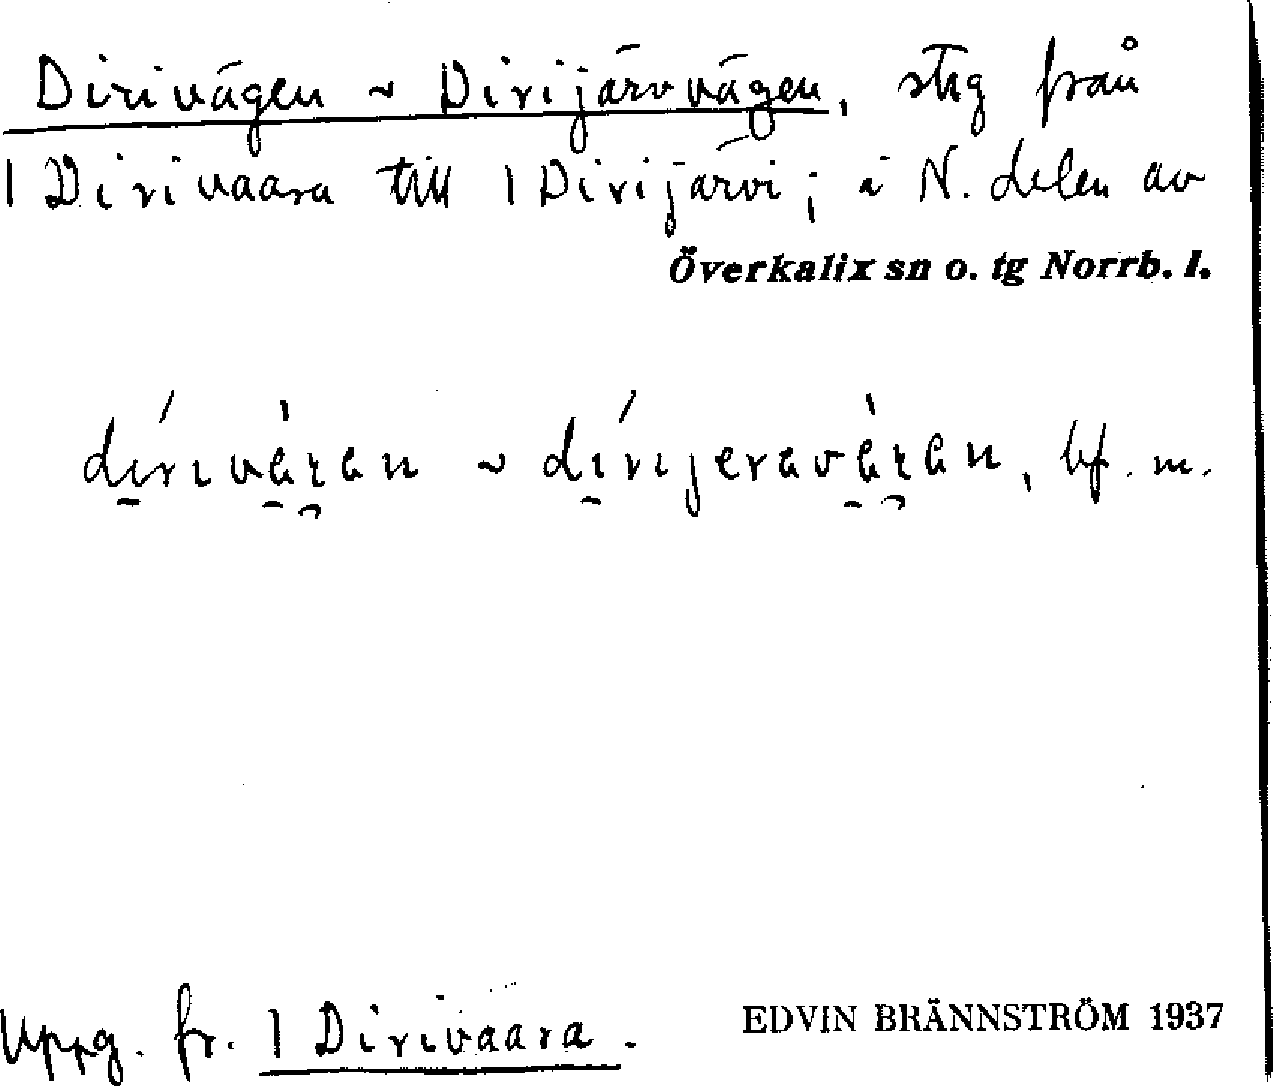 Dirivägen ~ Dirijärvvägen, stig från
1 Dirivaara till 1 Dirijärvi; i N. delen av
Överkalix sn o. tg Norrb. l.
bf. m.
Uppg. fr. 1 Dirivaara.
EDVIN BRÄNNSTRÖM 1937